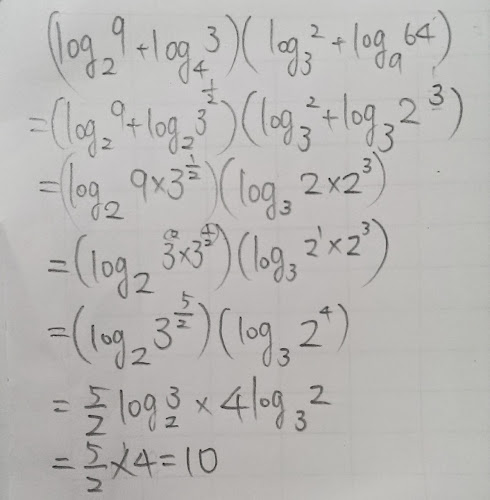 (log₂9 + log₄3)(log₃2 + log₉64)
= (log₂9 + log₂3^(1/2))(log₃2 + log₃2^3)
= (log₂ 9×3^(1/2))(log₃ 2×2^3)
= (log₂ 3^2×3^(1/2))(log₃ 2^1×2^3)
= (log₂ 3^(5/2))(log₃ 2^4)
= 5/2 log₂3 × 4 log₃2
= 5/2 × 4 = 10